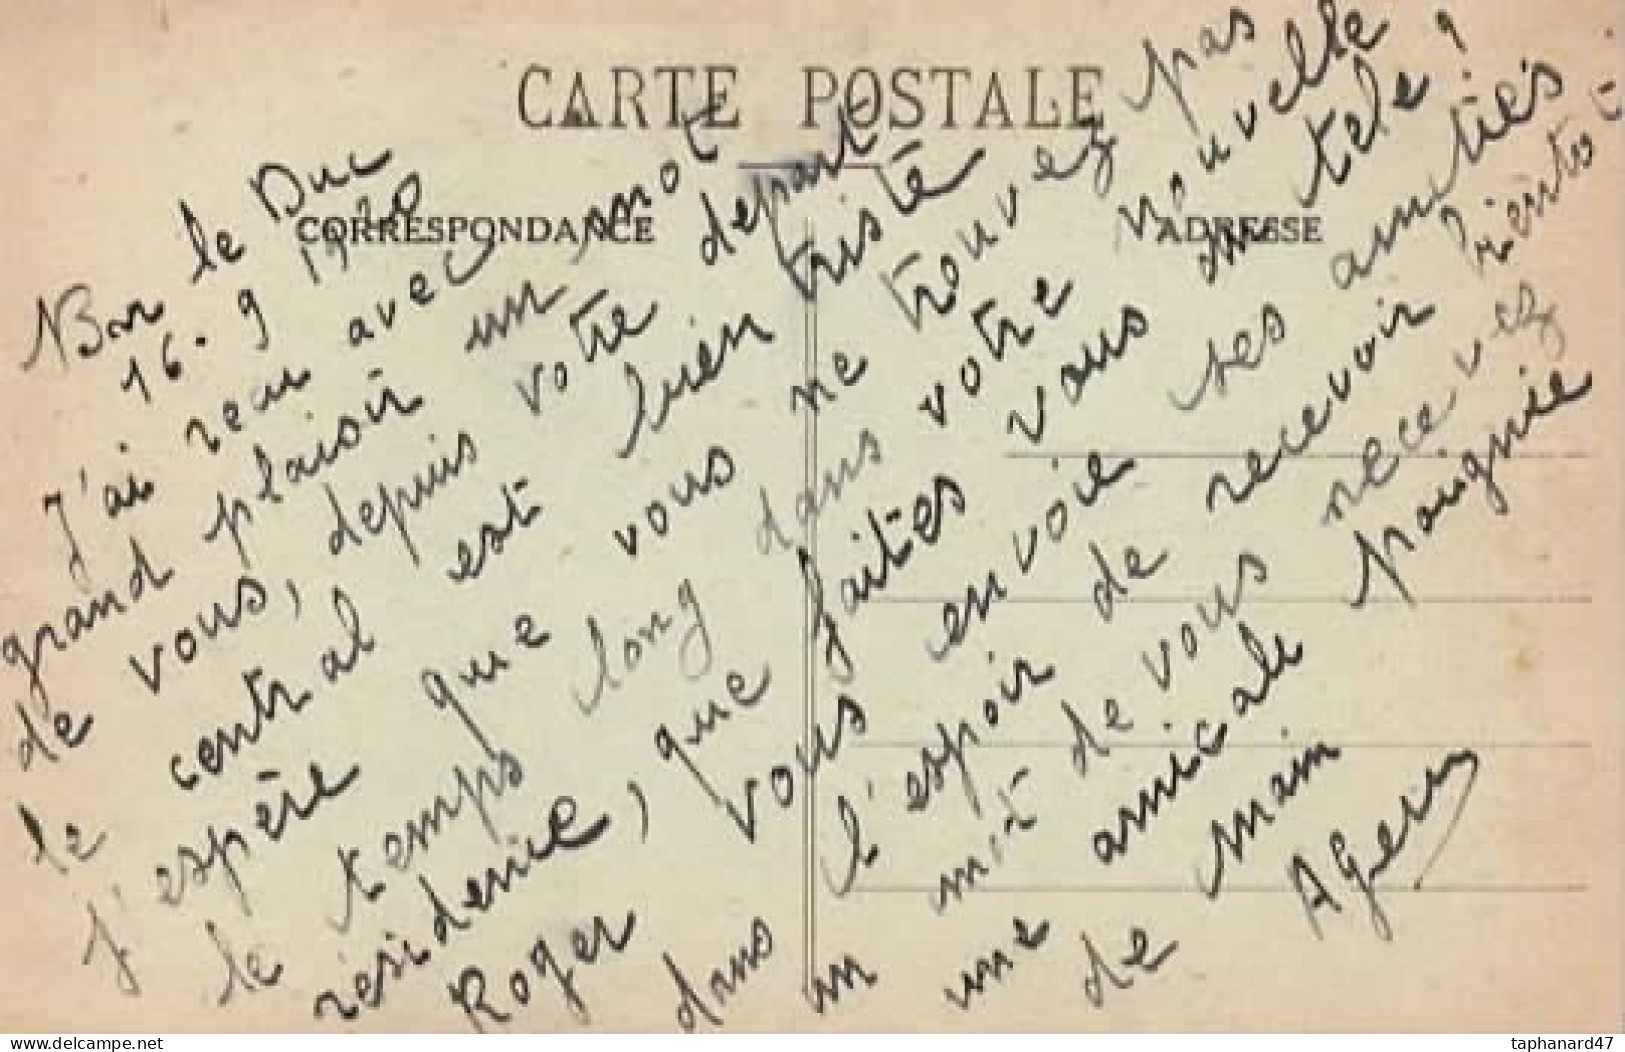 CARTE POSTALE
CORRESPONDANCE
ADRESSE
Bar le Duc
16. 9 1920
J'ai reçu avec
grand plaisir un mot
de vous, depuis votre depart
le central est bien triste
J'espère que vous ne trouvez pas
le temps long dans votre nouvelle
résidence, que faites vous de tele ?
Roger vous envoie ses amitiés
dans l'espoir de recevoir bientot
un mot de vous recevez
une amicale poignie
de main
taphanard47
www.delcampe.net